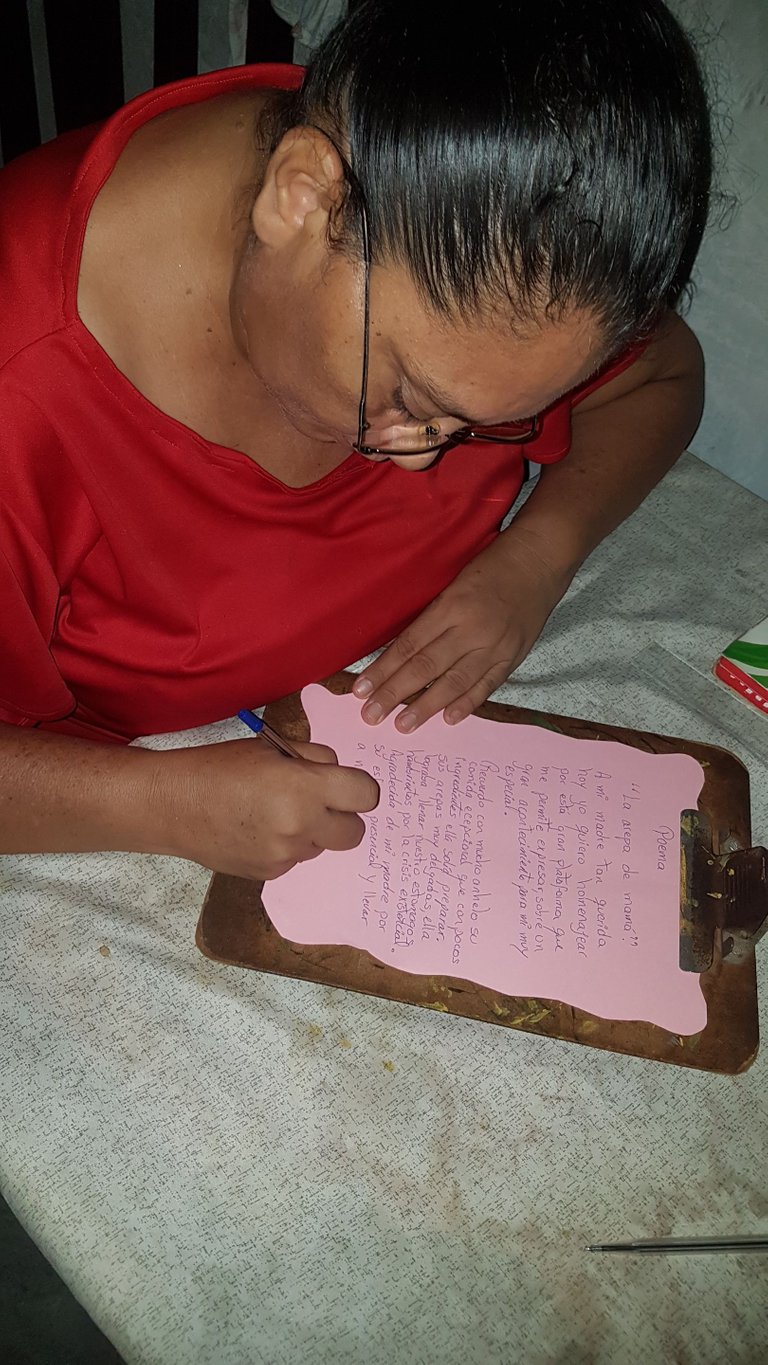 Poema
"La arepa de mamá"
A mi madre tan querida
hoy yo quiero homenajear
por esta gran plataforma, que
me permite expresar, sobre un
gran acontecimiento para mi muy
especial.
Recuerdo con mucho anhelo su
comida ecepcional que con pocos
ingredientes ella solía preparar.
sus arepas muy delgadas, ella
lograba llenar nuestro estomagos
hambrientos por la crisis existencial.
Agradecida de mi madre por
su es presencial y llenar
a n